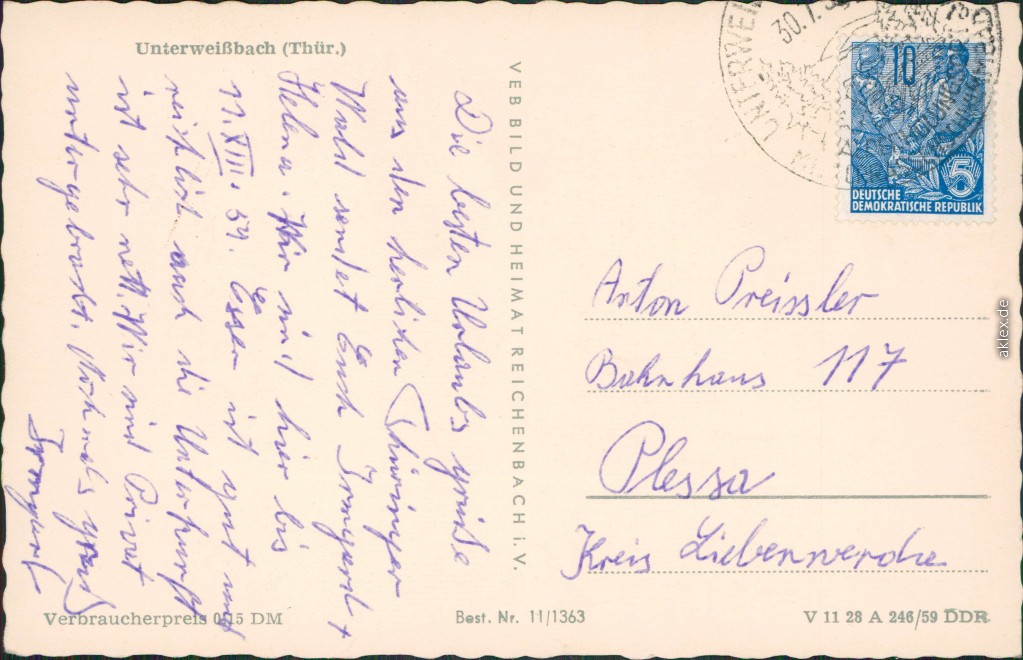 Unterweißbach (Thür.)
Die besten Urlaubsgrüße
aus den herlichen Thüringer
Wald sendet Euch Irmgard +
Helena. Wir sind hier bis
11. VIII. 59. Essen ist gut und
reichlich auch die Unterkunft
ist sehr nett. Wir sind Privat
untergebracht. Nochmals Gruß
Irmgard
VEB BILD UND HEIMAT REICHENBACH i. V.
30.7.59
10
5
DEUTSCHE
DEMOKRATISCHE REPUBLIK
Anton Preissler
Bahnhaus 117
Plessa
Kreis Liebenwerda
Verbraucherpreis 0,15 DM
Best. Nr. 11/1363
V 11 28 A 246/59 DDR
aklex.de